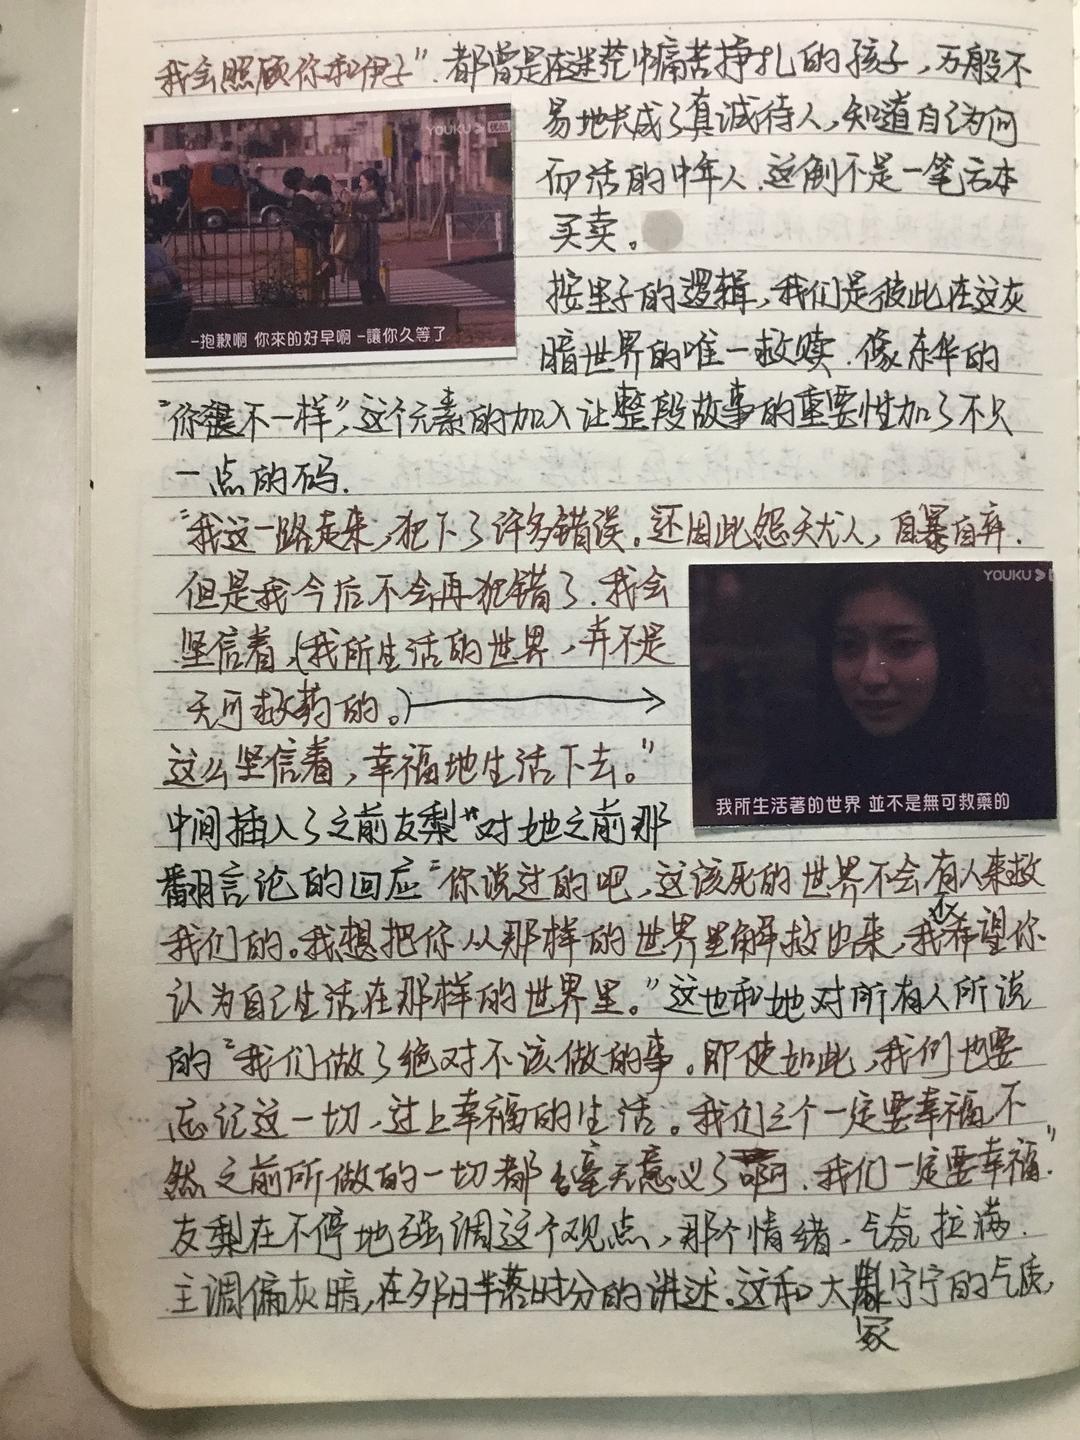 我会照顾你和伊子”.都曾是在迷茫中痛苦挣扎的孩子，万般不
易地长成了真诚待人，知道自己为何
而活的中年人.这倒不是一笔亏本
买卖。
YOUKU 优酷
-抱歉啊 你來的好早啊 -讓你久等了
按里子的逻辑，我们是彼此在这灰
暗世界的唯一救赎.像东华的
“你很不一样”，这个元素的加入让整段故事的重要性加了不只
一点的码.
“我这一路走来，犯下了许多错误。还因此怨天尤人，自暴自弃.
但是我今后不会再犯错了.我会
坚信着，(我所生活的世界，并不是
无可救药的。)
YOUKU
我所生活著的世界 並不是無可救藥的
这么坚信着，幸福地生活下去。”
中间插入了之前友梨对她之前那
翻言论的回应“你说过的吧，这该死的世界不会有人来救
我们的。我想把你从那样的世界里解救出来，我不希望你
认为自己生活在那样的世界里。”这也和她对所有人所说
的“我们做了绝对不该做的事。即使如此，我们也要
忘记这一切，过上幸福的生活。我们三个一定要幸福，不
然之前所做的一切都毫无意义了啊.我们一定要幸福.”
友梨在不停地强调这个观点，那个情绪、气氛拉满.
主调偏灰暗，在夕阳半落时分的讲述。这和大家宁宁的气质，